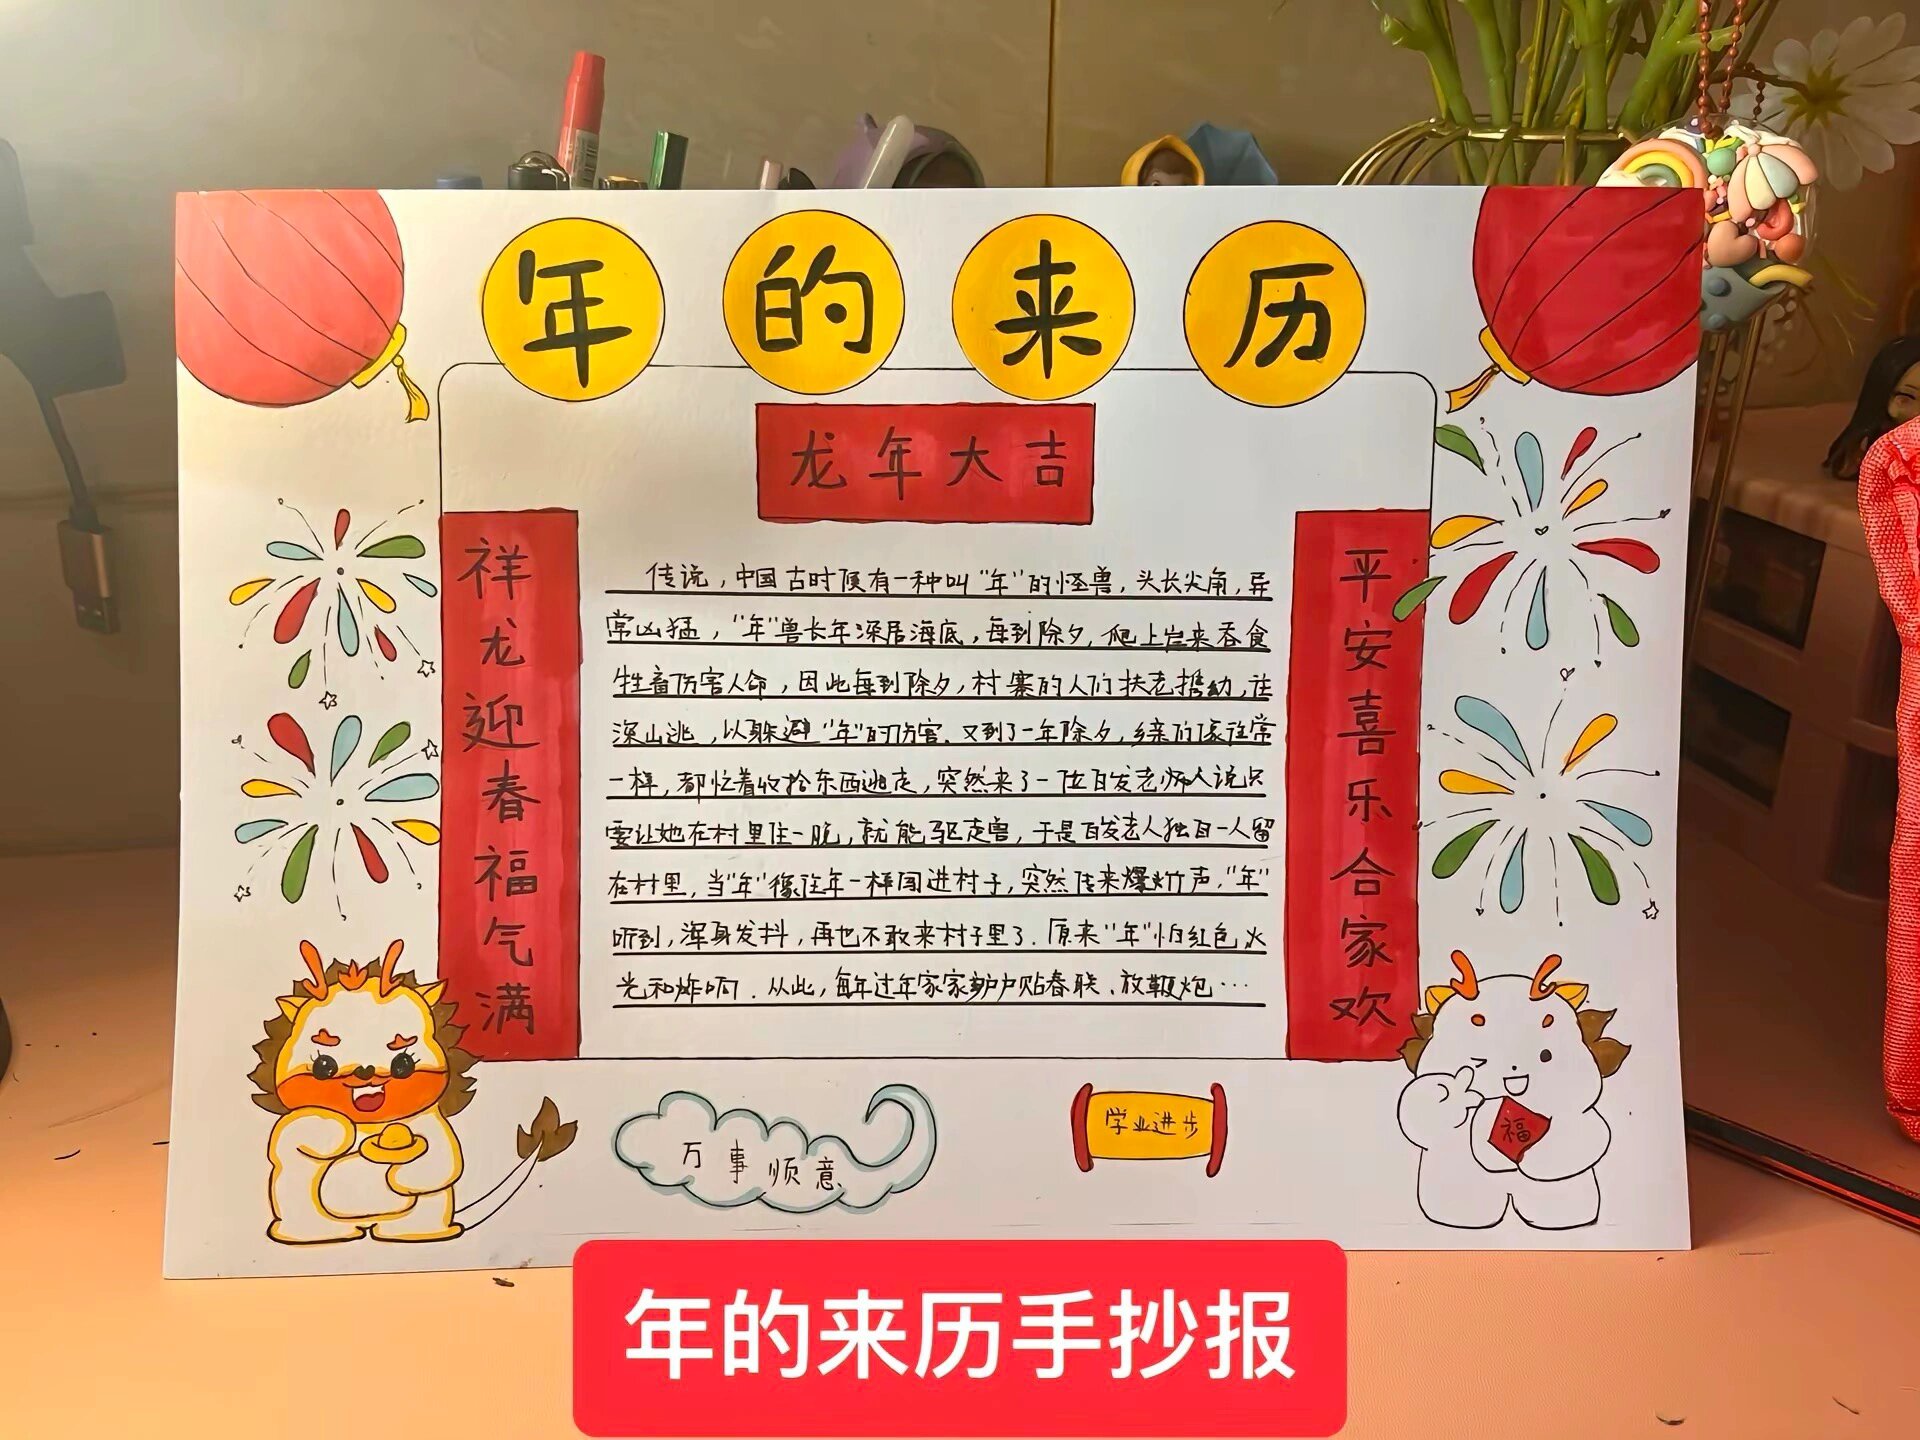 年的来历
龙年大吉
祥龙迎春福气满
传说，中国古时候有一种叫“年”的怪兽，头长尖角，异
常凶猛，“年”兽长年深居海底，每到除夕，爬上岸来吞食
牲畜伤害人命，因此每到除夕，村寨的人们扶老携幼，往
深山逃，以躲避“年”的伤害．又到了一年除夕，乡亲们像往常
一样，都忙着收拾东西逃走，突然来了一位白发老人说只
要让她在村里住一晚，就能驱走兽，于是白发老人独自一人留
在村里，当“年”像往年一样闯进村子，突然传来爆竹声，“年”
听到，浑身发抖，再也不敢来村子里了．原来“年”怕红色火
光和炸响．从此，每年过年家家户户贴春联、放鞭炮…
平安喜乐合家欢
万事顺意
学业进步
福
年的来历手抄报